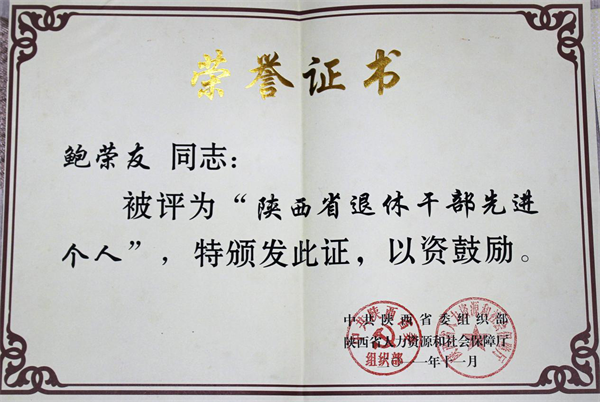 荣誉证书
鲍荣友 同志：
被评为“陕西省退休干部先进
个人”，特颁发此证，以资鼓励。
中共陕西省委组织部
陕西省人力资源和社会保障厅
一一年十一月
组织部